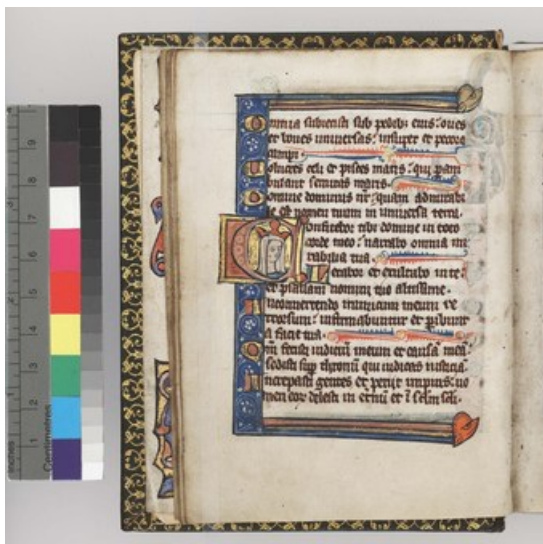 Omnia subiecisti sub pedib; eius: oues
et boues uniuersas: insuper et pecora
campi
Uolucres celi et pisces maris: qui pam
bulant semitas maris.
Domine dominus nr: quam admirabi
le est nomen tuum in uniuersa terra.
Confitebor tibi domine in toto
corde meo: narrabo omnia mi
rabilia tua.
Letabor et exultabo in te:
et psallam nomini tuo altissime.
In conuertendo inimicum meum re
trorsum: infirmabuntur et peribunt
a facie tua.
Qm fecisti iudiciu meum et causam mea:
sedisti sup thronu qui iudicas iusticia.
Increpasti gentes et periit impius: no
men eor delesti in eternu et i sclm scli.
1 2 3 4 5 6 7 8 9
inches 1 2 3
Centimetres